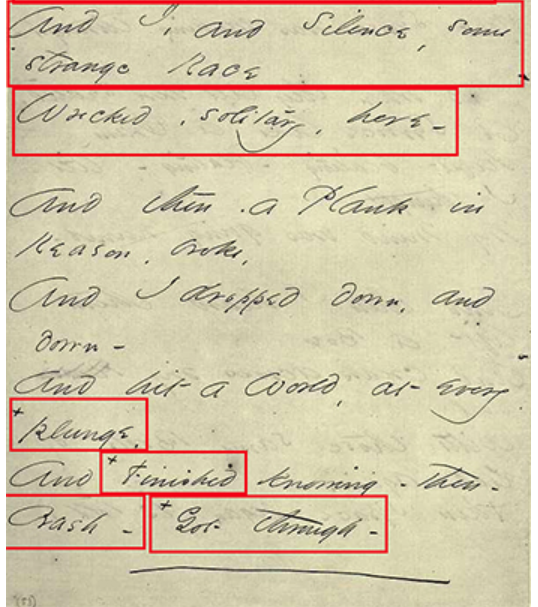 And I, and Silence, some
strange Race
Wrecked, solitary, here -
And then a Plank in
Reason, broke,
And I dropped down, and
down -
And hit a World, at every
+ plunge,
And + Finished knowing - then -
Crash - + Got through -